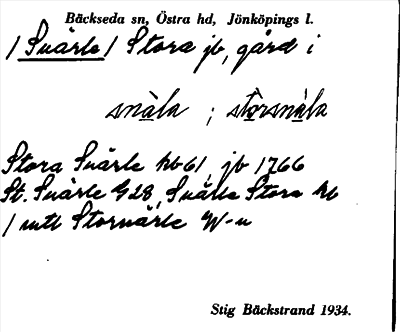 Bäckseda sn, Östra hd, Jönköpings l.
/ Snärle / Stora jb, gård i
snä̱la ; sto̱rsnä̱la
Stora Snärle hb61, jb 1766
St. Snärle G28, Snärle Stora hb
/ mtl Storsnärle
Stig Bäckstrand 1934.